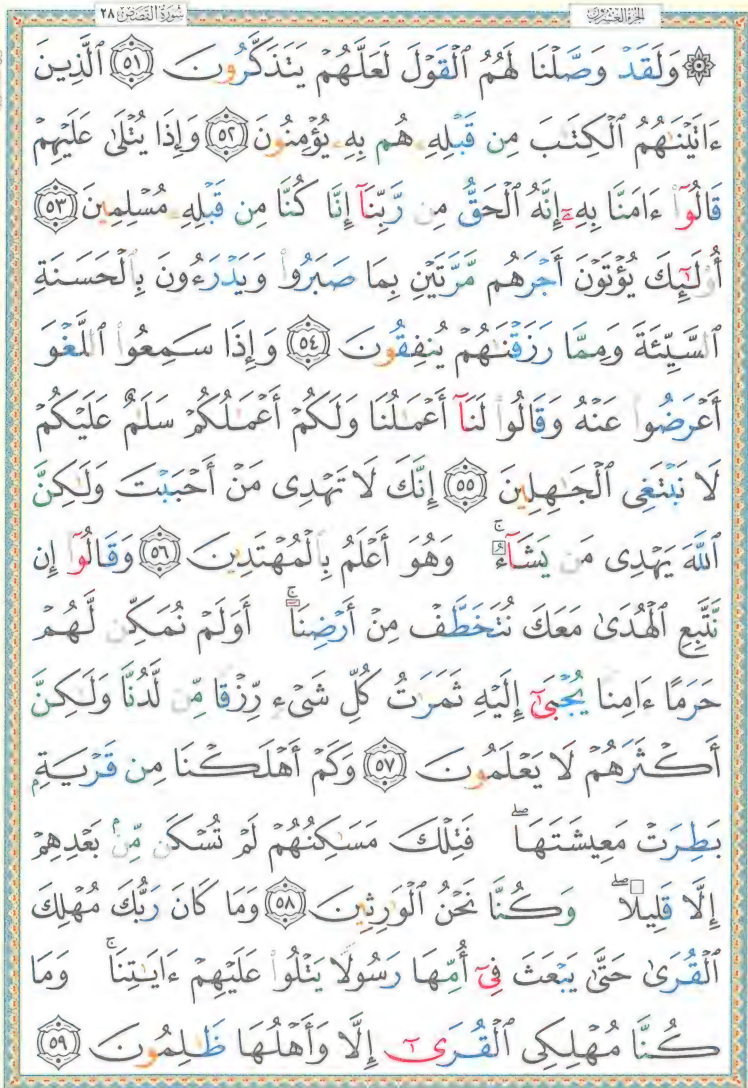 سُورَةُ القَصَصِ ٢٨
الجُزْءُ العِشْرُونَ
۞ وَلَقَدْ وَصَّلْنَا لَهُمُ ٱلْقَوْلَ لَعَلَّهُمْ يَتَذَكَّرُونَ ٥١ ٱلَّذِينَ
ءَاتَيْنَٰهُمُ ٱلْكِتَٰبَ مِن قَبْلِهِۦ هُم بِهِۦ يُؤْمِنُونَ ٥٢ وَإِذَا يُتْلَىٰ عَلَيْهِمْ
قَالُوٓا۟ ءَامَنَّا بِهِۦٓ إِنَّهُ ٱلْحَقُّ مِن رَّبِّنَآ إِنَّا كُنَّا مِن قَبْلِهِۦ مُسْلِمِينَ ٥٣
أُو۟لَٰٓئِكَ يُؤْتَوْنَ أَجْرَهُم مَّرَّتَيْنِ بِمَا صَبَرُوا۟ وَيَدْرَءُونَ بِٱلْحَسَنَةِ
ٱلسَّيِّئَةَ وَمِمَّا رَزَقْنَٰهُمْ يُنفِقُونَ ٥٤ وَإِذَا سَمِعُوا۟ ٱللَّغْوَ
أَعْرَضُوا۟ عَنْهُ وَقَالُوا۟ لَنَآ أَعْمَٰلُنَا وَلَكُمْ أَعْمَٰلُكُمْ سَلَٰمٌ عَلَيْكُمْ
لَا نَبْتَغِى ٱلْجَٰهِلِينَ ٥٥ إِنَّكَ لَا تَهْدِى مَنْ أَحْبَبْتَ وَلَٰكِنَّ
ٱللَّهَ يَهْدِى مَن يَشَآءُ ۚ وَهُوَ أَعْلَمُ بِٱلْمُهْتَدِينَ ٥٦ وَقَالُوٓا۟ إِن
نَّتَّبِعِ ٱلْهُدَىٰ مَعَكَ نُتَخَطَّفْ مِنْ أَرْضِنَآ ۚ أَوَلَمْ نُمَكِّن لَّهُمْ
حَرَمًا ءَامِنًا يُجْبَىٰٓ إِلَيْهِ ثَمَرَٰتُ كُلِّ شَىْءٍ رِّزْقًا مِّن لَّدُنَّا وَلَٰكِنَّ
أَكْثَرَهُمْ لَا يَعْلَمُونَ ٥٧ وَكَمْ أَهْلَكْنَا مِن قَرْيَةٍۭ
بَطِرَتْ مَعِيشَتَهَا ۖ فَتِلْكَ مَسَٰكِنُهُمْ لَمْ تُسْكَن مِّنۢ بَعْدِهِمْ
إِلَّا قَلِيلًا ۖ وَكُنَّا نَحْنُ ٱلْوَٰرِثِينَ ٥٨ وَمَا كَانَ رَبُّكَ مُهْلِكَ
ٱلْقُرَىٰ حَتَّىٰ يَبْعَثَ فِىٓ أُمِّهَا رَسُولًا يَتْلُوا۟ عَلَيْهِمْ ءَايَٰتِنَا ۚ وَمَا
كُنَّا مُهْلِكِى ٱلْقُرَىٰٓ إِلَّا وَأَهْلُهَا ظَٰلِمُونَ ٥٩